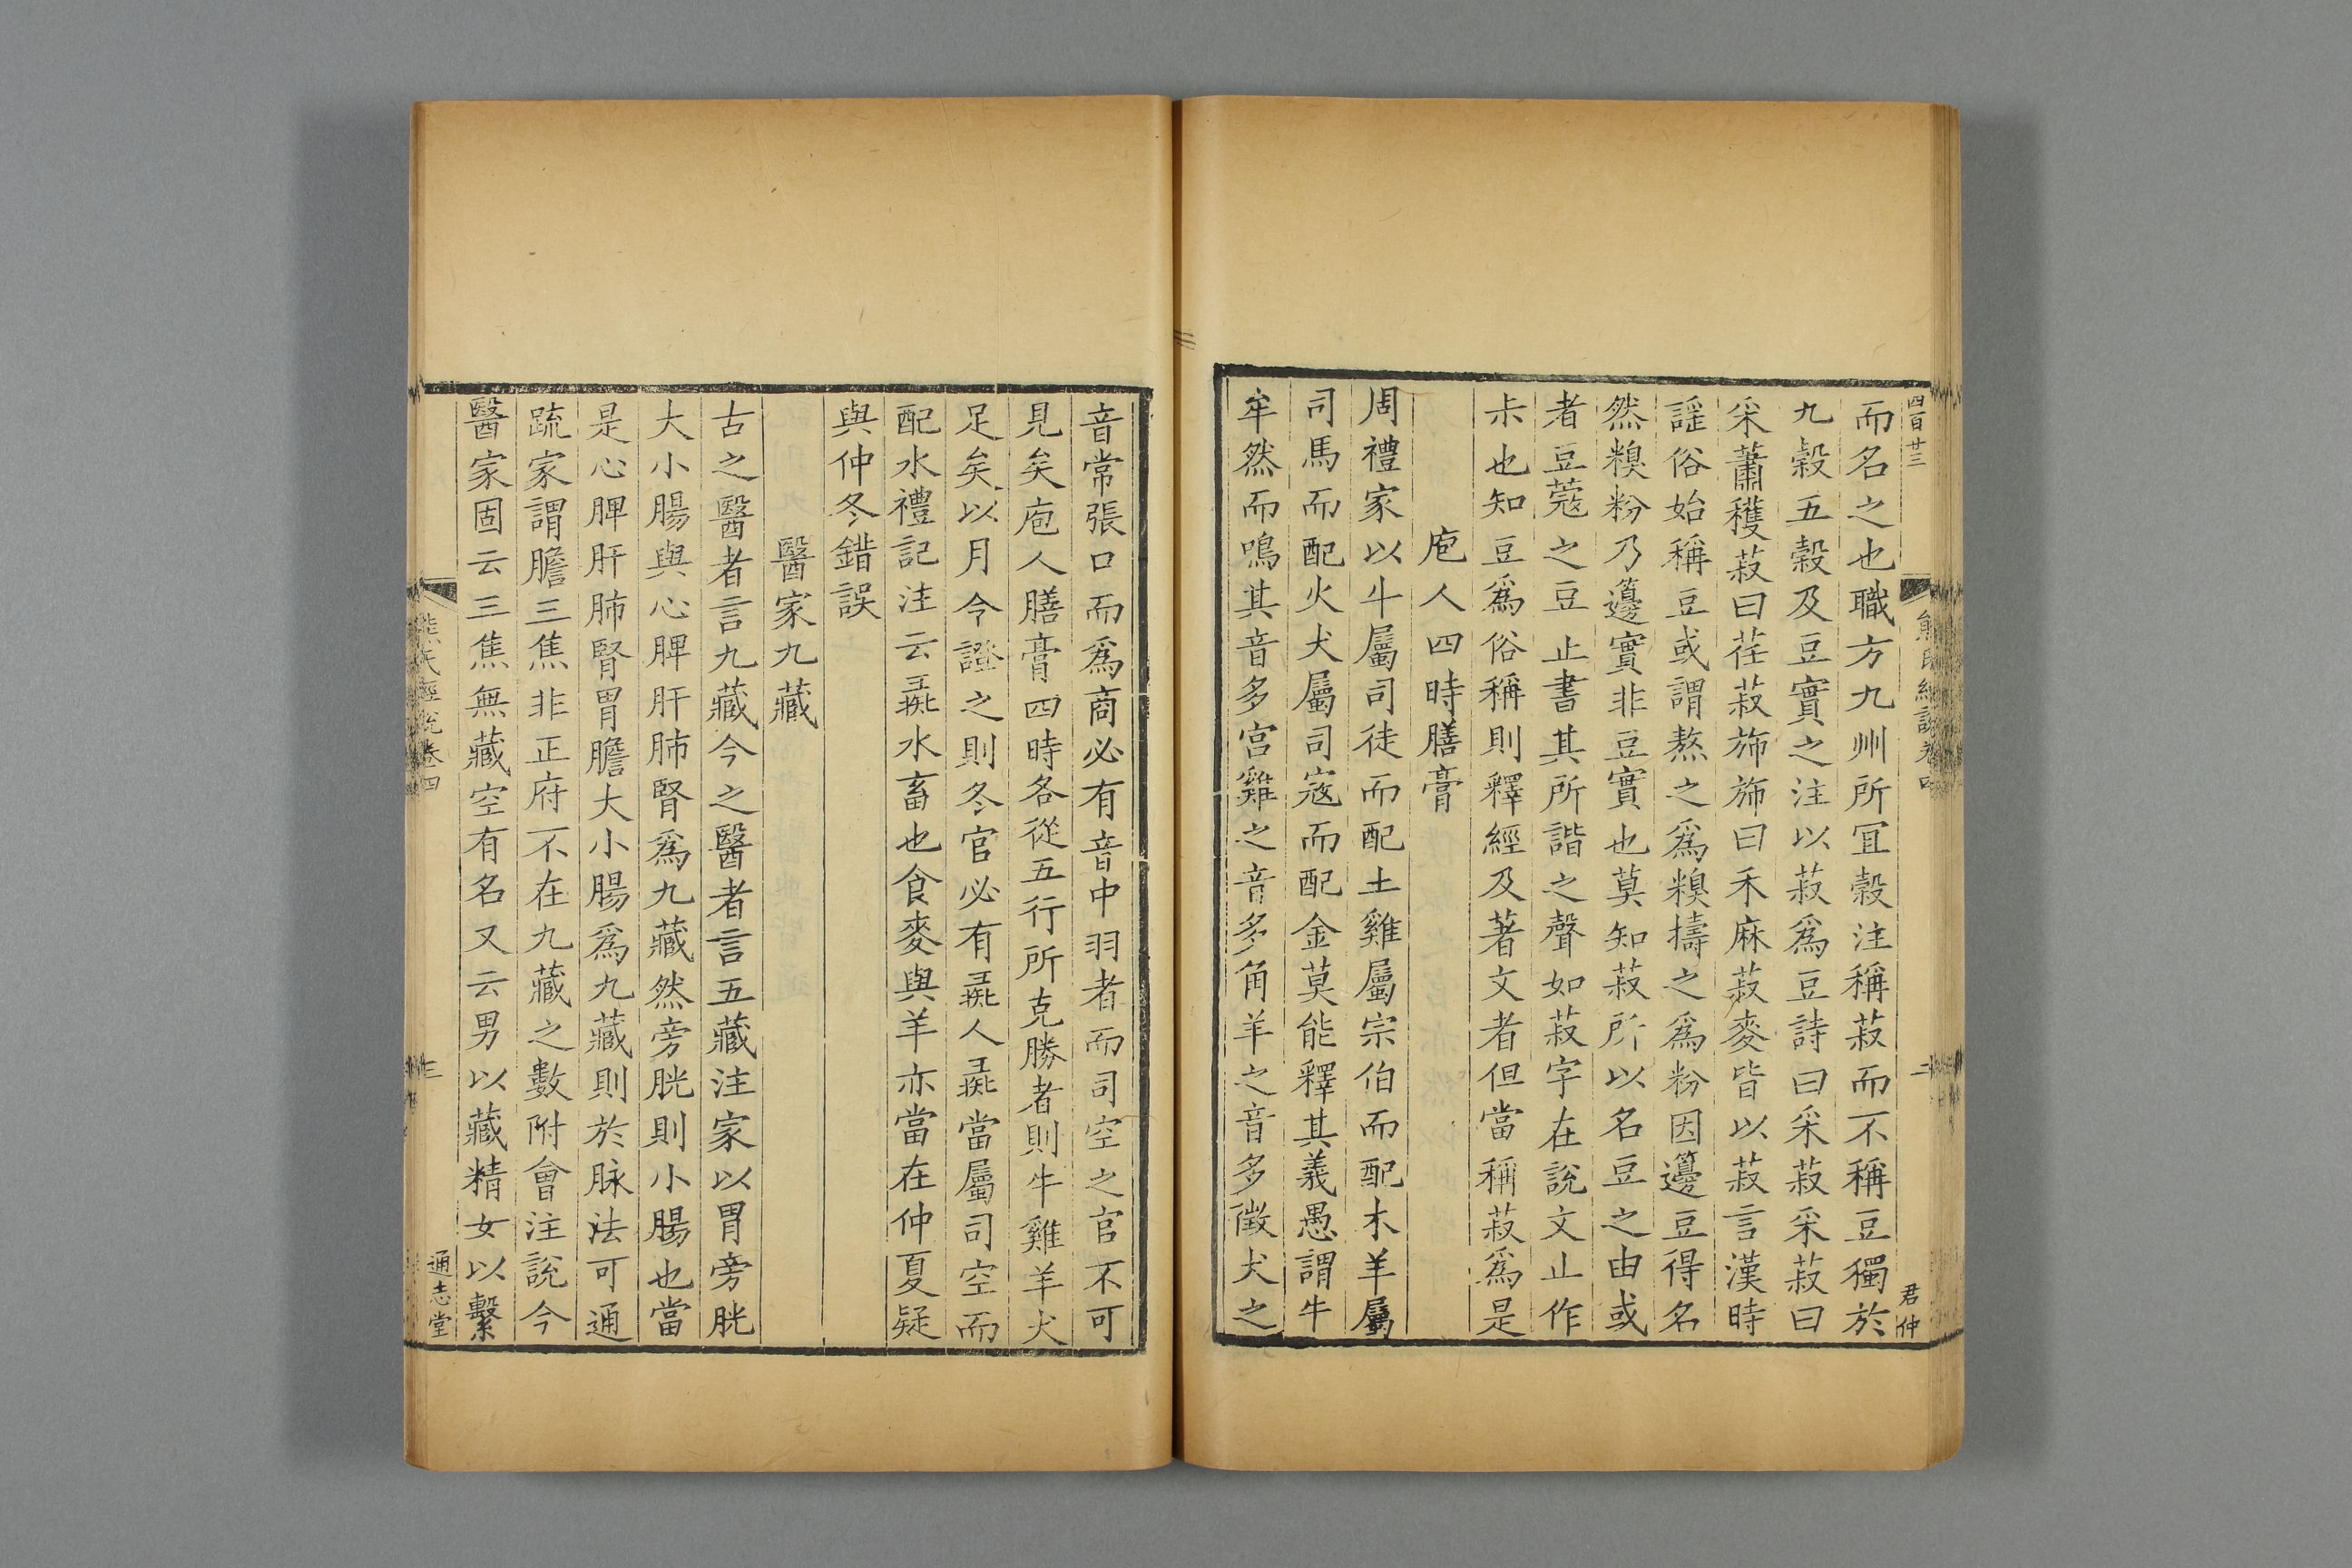 四百廿三
君仲
而名之也職方九州所宜穀注稱菽而不稱豆獨於
九穀五穀及豆實之注以菽爲豆詩曰采菽采菽曰
采蕭穫菽曰荏菽斾斾曰禾麻菽麥皆以菽言漢時
謡俗始稱豆或謂熬之爲糗擣之爲粉因籩豆得名
然糗粉乃籩實非豆實也莫知菽所以名豆之由或
者豆蔻之豆止書其所諧之聲如菽字在說文止作
尗也知豆爲俗稱則釋經及著文者但當稱菽爲是
庖人四時膳膏
周禮家以牛屬司徒而配土雞屬宗伯而配木羊屬
司馬而配火犬屬司寇而配金莫能釋其義愚謂牛
牟然而鳴其音多宮雞之音多角羊之音多徵犬之
音常張口而爲商必有音中羽者而司空之官不可
見矣庖人膳膏四時各從五行所克勝者則牛雞羊犬
足矣以月令證之則冬官必有彘人彘當屬司空而
配水禮記注云彘水畜也食麥與羊亦當在仲夏疑
與仲冬錯誤
醫家九藏
古之醫者言九藏今之醫者言五藏注家以胃旁胱
大小腸與心脾肝肺腎爲九藏然旁胱則小腸也當
是心脾肝肺腎胃膽大小腸爲九藏則於脉法可通
疏家謂膽三焦非正府不在九藏之數附會注說今
醫家固云三焦無藏空有名又云男以藏精女以繫
熊氏經說卷四
三
通志堂